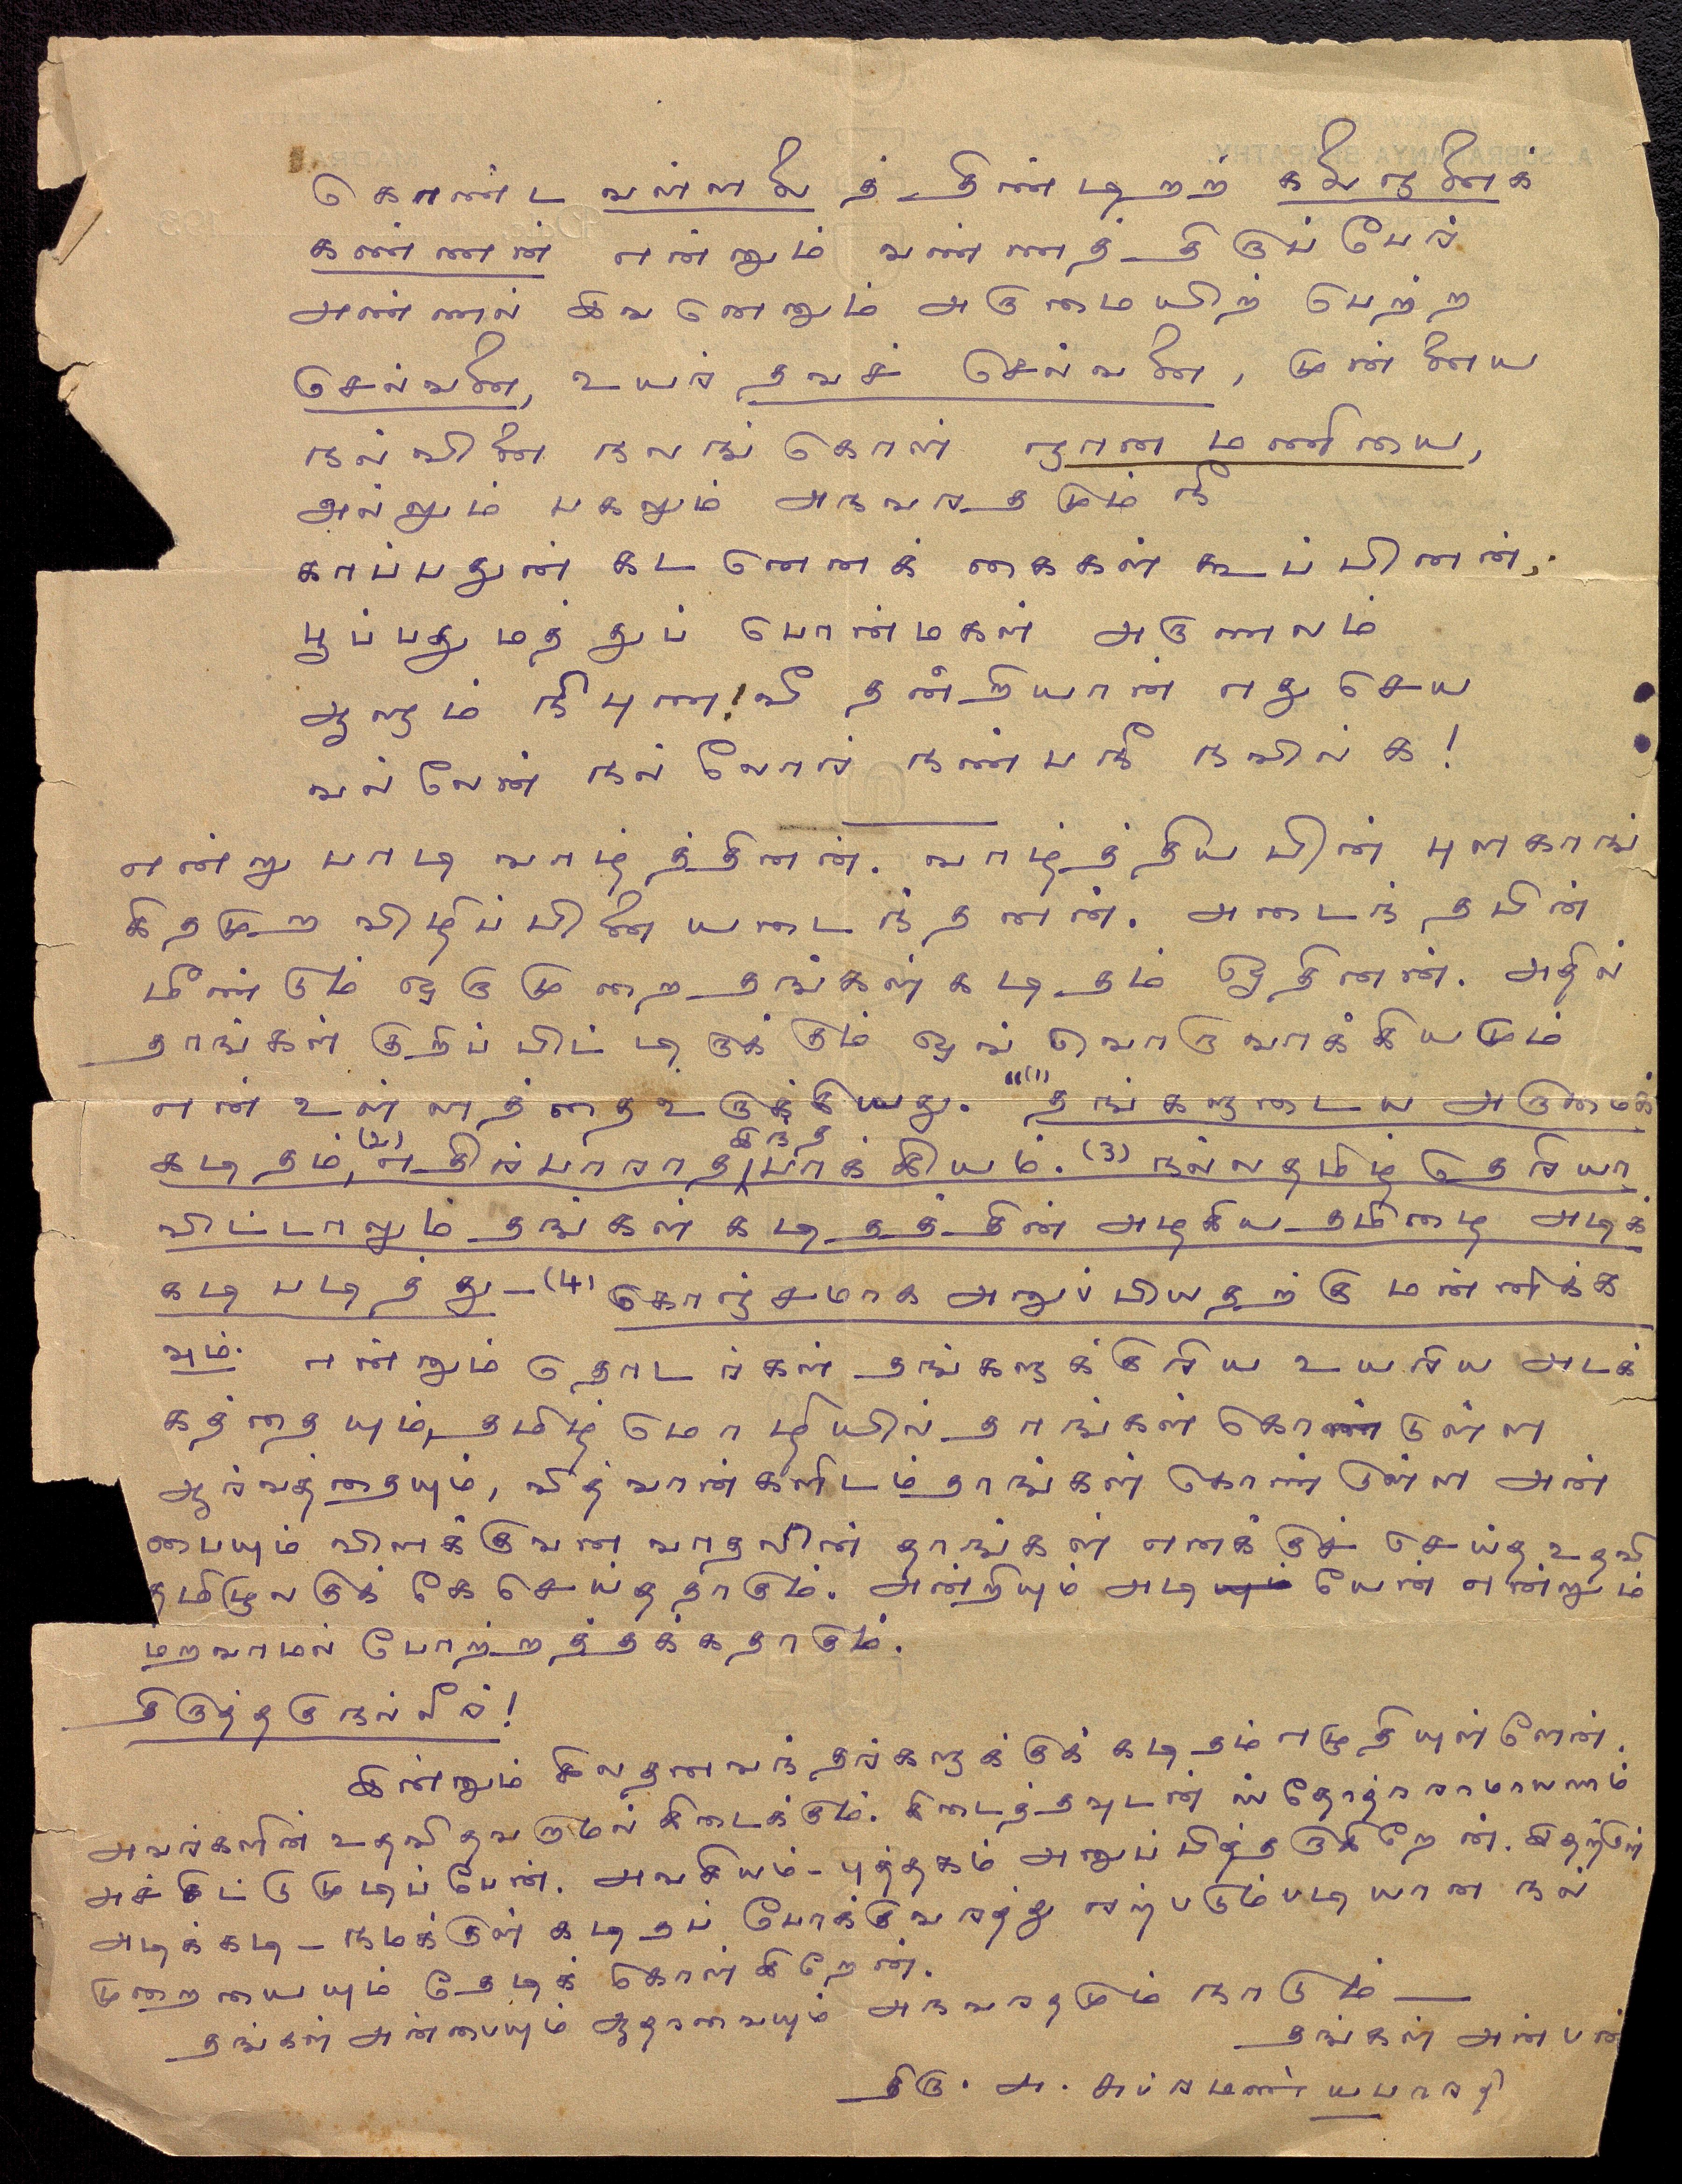 கொண்ட வள்ளலைத் திண்டிறற் கலைநனைக்
கண்ணன் என்னும் வண்ணத் திருப்பேர்
அண்ணல் இவனெனும் அருமையிற் பெற்ற
செல்வனை, உயர் தவச் செல்வனை, முன்னைய
நல்வினை நலங்கொள் ஞான மணியை,
அல்லும் பகலும் அநவரதமும் நீ
காப்பதுன் கடனெனக் கைகள் கூப்பினன்,
பூப்பதுமத்துப் பொன்மகள் அருணலம்
ஆளும் நீபுண! லீ தன்றியான் எது செய
வல்லேன் நல்லோர் நண்பநீ நவில்க!
என்று பாடி வாழ்த்தினன். வாழ்த்திய பின் புளகாங்
கிதமுற விழிப்பினை யடைந்தனன். அடைந்தபின்
மீண்டும் ஒருமுறை தங்கள் கடிதம் ஓதினன். அதில்
தாங்கள் குறிப்பிட்டிருக்கும் ஒவ்வொரு வாக்கியமும்
என் உள்ளத்தை உருக்கியது. "(1) தங்களுடைய அருமைக்
கடிதம், (2) எதிர்பாராத இந்த பாக்கியம். (3) நல்லதமிழ் தெரியா
விட்டாலும் தங்கள் கடிதத்தின் அழகிய தமிழை அடிக்
கடி படித்து - (4) கொஞ்சமாக அனுப்பியதற்கு மன்னிக்க
வும். என்னும் தொடர்கள் தங்களுக்குரிய உயரிய அடக்
கத்தையும், தமிழ் மொழியில் தாங்கள் கொண்டுள்ள
ஆர்வத்தையும், வித்வான்களிடம் தாங்கள் கொண்டுள்ள அன்
பையும் விளக்குவன வாதலின் தாங்கள் எனக்குச் செய்த உதவி
தமிழுலகுக்கே செய்ததாகும். அன்றியும் அடியேன் என்றும்
மறவாமல் போற்றத்தக்கதாகும்.
திருத்தகுநல்லீர்!
இன்னும் சிலதனவந்தர்களுக்குக் கடிதம் எழுதியுள்ளேன்.
அவர்களின் உதவி தவருமல் கிடைக்கும். கிடைத்தவுடன் ஸ்தோத்ரராமாயணம்
அச்சிட்டு முடிப்பேன். அவசியம் - புத்தகம் அனுப்பித்தருகிறேன். இதற்குள்
அடிக்கடி - நமக்குள் கடிதப் போக்குவரத்து ஏற்படும்படியான நல்
முறையையும் தேடிக் கொள்கிறேன்.
தங்கள் அன்பையும் ஆதரவையும் அநவரதமும் நாடும் —
தங்கள் அன்பன்
திரு. அ. சுப்ரமண்யபாரதி